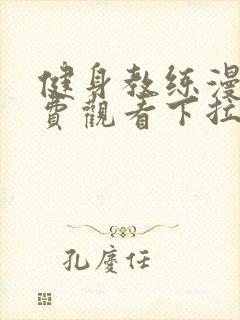 健身教练漫
费觀看下拉
孔慶任